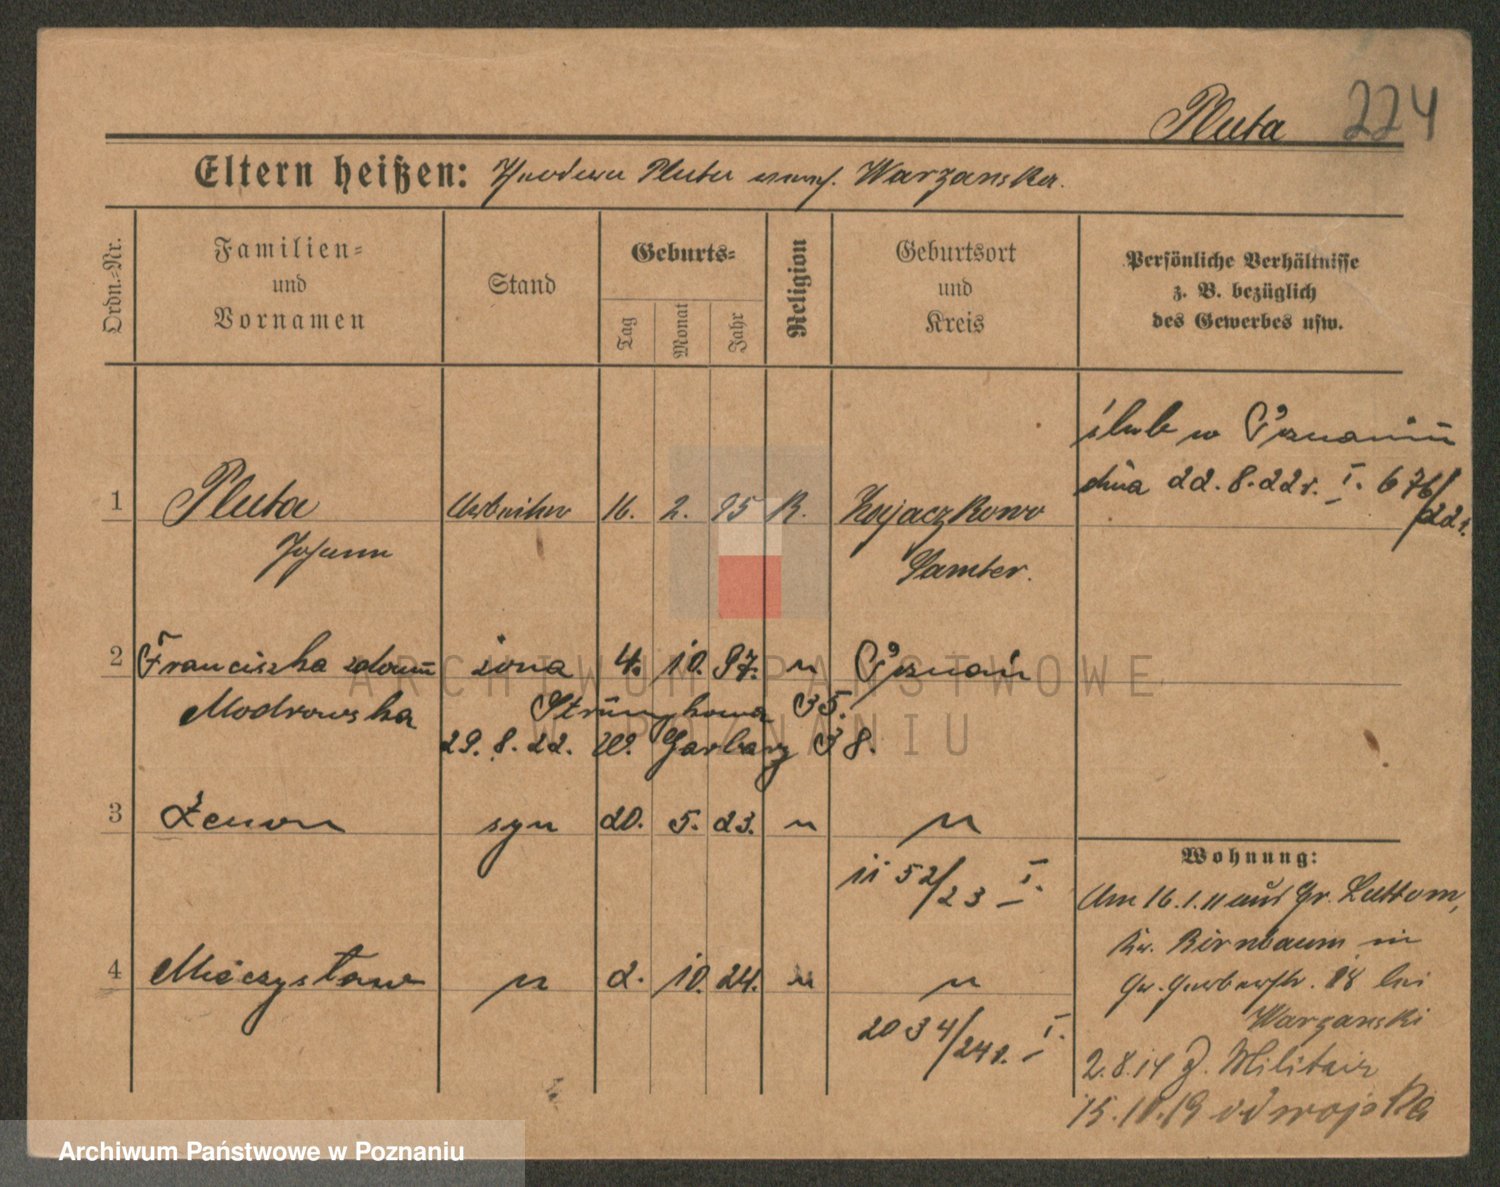 Pluta 224
Eltern heißen: Theodera Pluta Warzanska.
Ordn.-Nr.
Familien- und Vornamen
Stand
Geburts-
Tag
Monat
Jahr
Religion
Geburtsort und Kreis
Persönliche Verhältnisse
z. B. bezüglich
des Gewerbes usw.
ślub w Poznaniu
dnia 22.8.22r. I. 676/22r.
1 Pluta Arbeiter 16. 2. 95 K. Kojaczkowo
Johann Samter.
2 Franciszka z domu żona 4. 10. 97. " Poznań
Modrowska Strumykowa 35.
29. 8. 22. W. Garbary 38.
3 Zenon syn 20. 5. 23. " "
1152/23 I.
4 Mieczysław " 2. 10. 24. " "
2034/24r. I.
Wohnung:
Am 16.1.11 aus Gr. Luttom,
Kr. Birnbaum in
Gr. Gerberstr. 18 bei
Warzanski
2.8.14 z. Militair
15.10.19 od wojska
ARCHIWUM PAŃSTWOWE
W POZNANIU
Archiwum Państwowe w Poznaniu